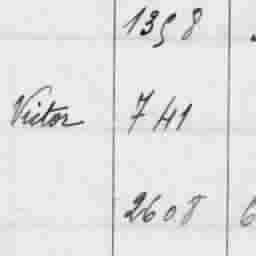 1398
Victor 741
2608